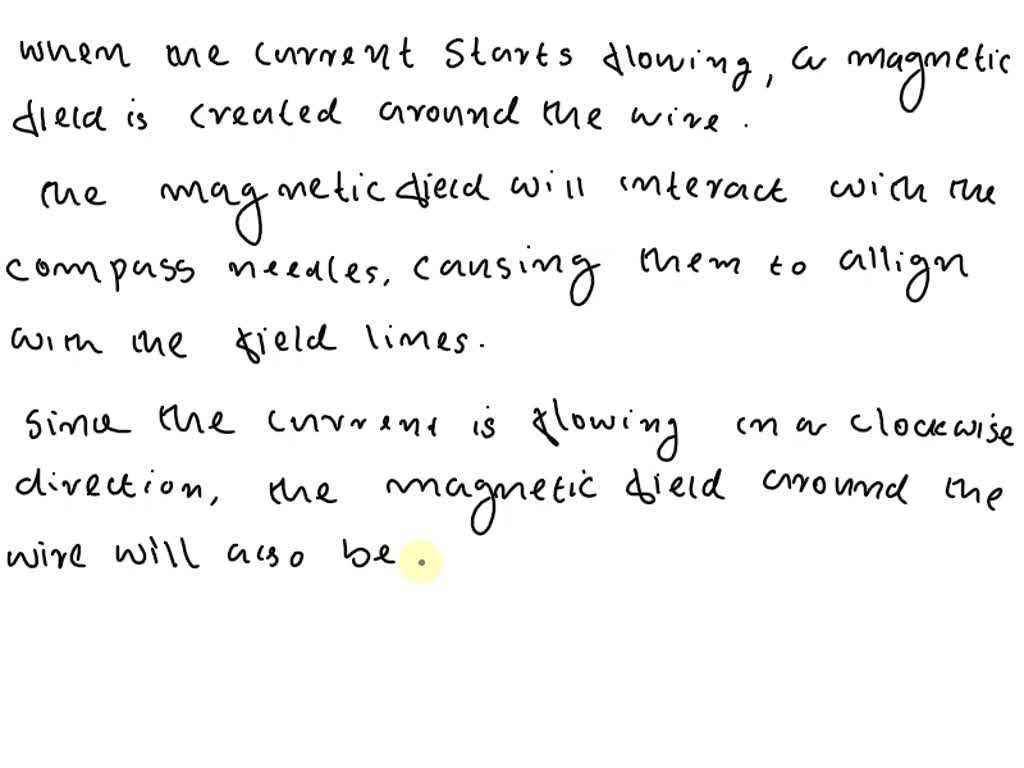 when the current starts flowing, a magnetic
field is created around the wire.
the magnetic field will interact with the
compass needles, causing them to allign
with the field lines.
since the current is flowing in a clockwise
direction, the magnetic field around the
wire will also be